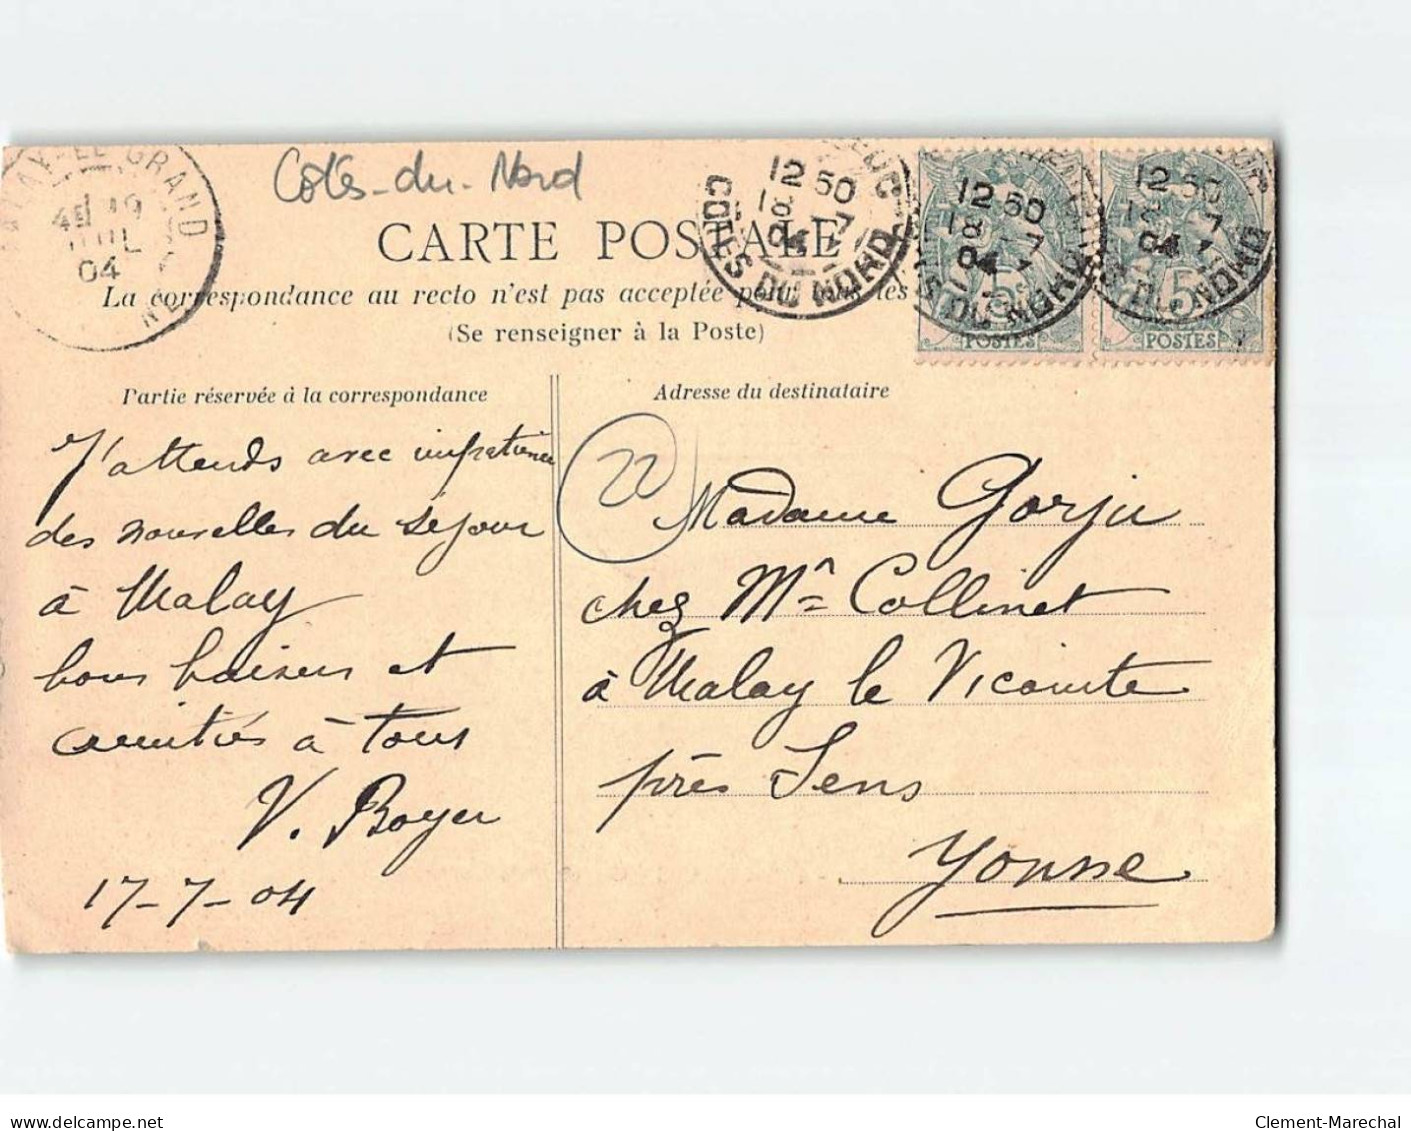 Côtes-du-Nord
CARTE POSTALE
La correspondance au recto n'est pas acceptée pour tous les
(Se renseigner à la Poste)
LE GRAND
19
JUIL
04
12 50
18 7
04
COTES DU NORD
12 50
18 7
04
DU NORD
5c
POSTES
12 50
7
04
DU NORD
5c
POSTES
Partie réservée à la correspondance
J'attends avec impatience
des nouvelles du séjour
à Malay
bons baisers et
amitiés à tous
V. Boyer
17-7-04
Adresse du destinataire
22
Madame Gorju
chez Mr Collinet
à Malay le Vicomte
près Sens
Yonne
www.delcampe.net
Clement-Marechal